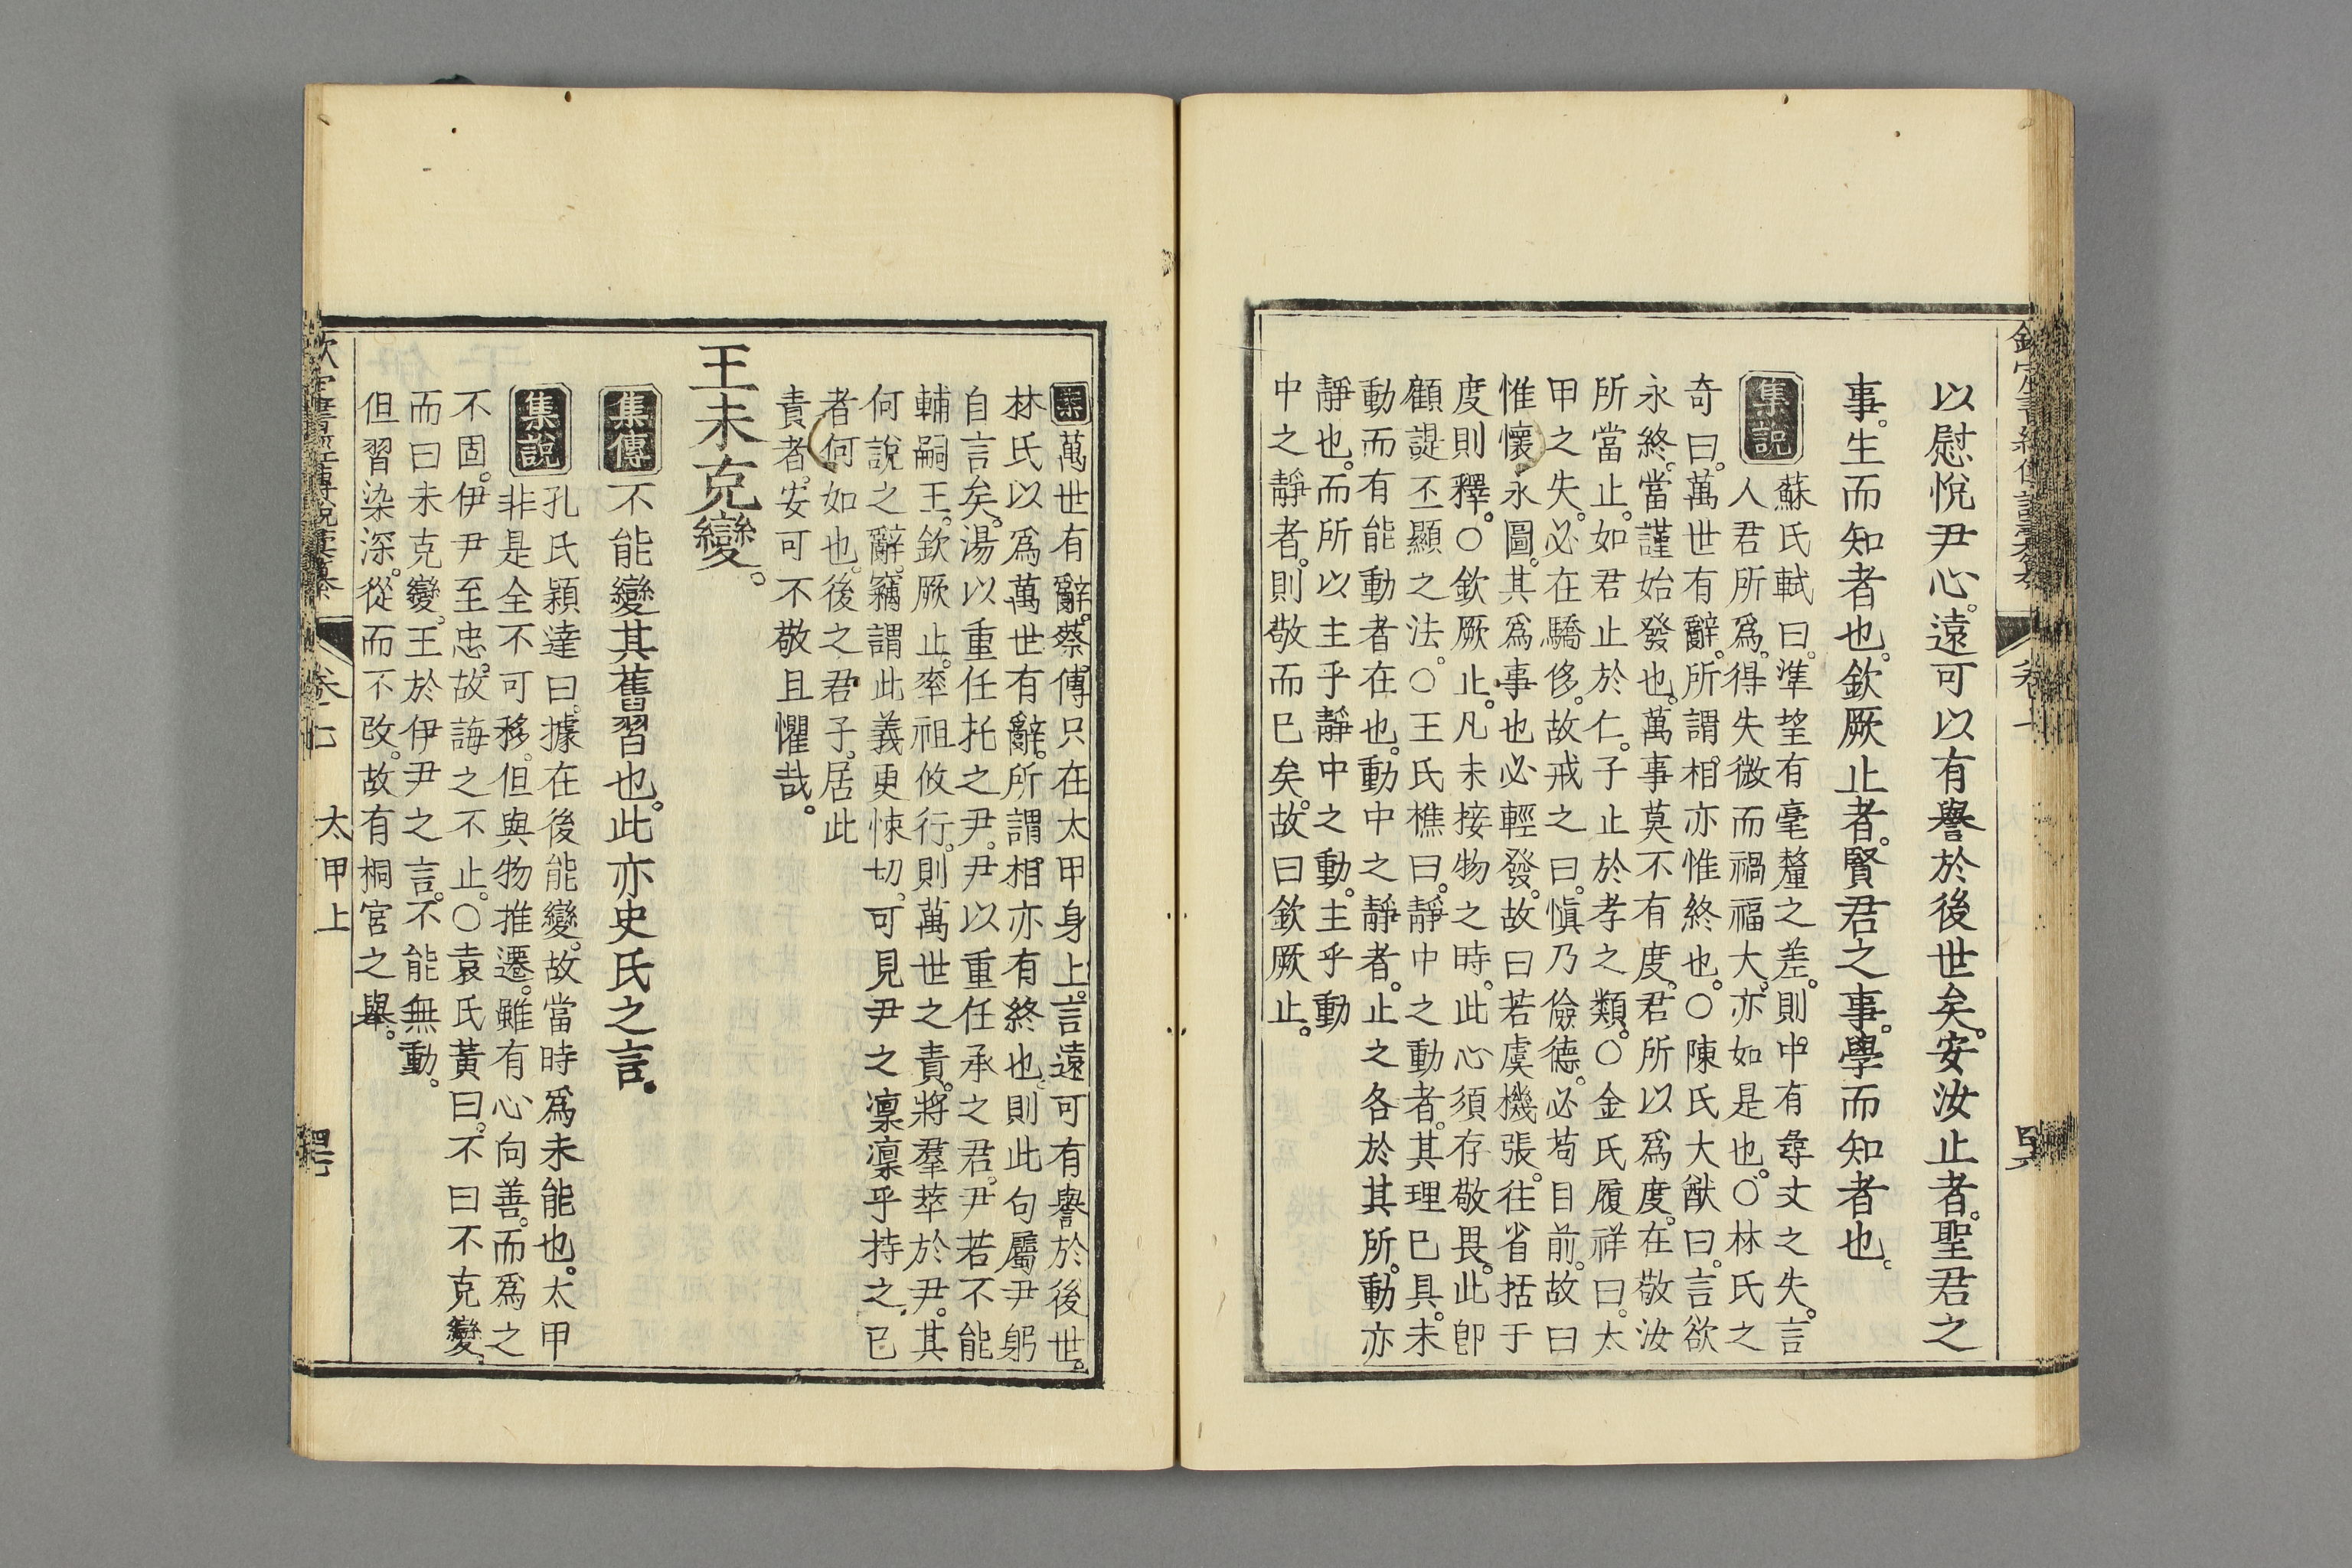 以慰悅尹心。遠可以有譽於後世矣。安汝止者。聖君之
事。生而知者也。欽厥止者。賢君之事。學而知者也。
集說
蘇氏軾曰。準望有毫釐之差。則中有尋丈之失。言
人君所爲。得失微而禍福大。亦如是也。○林氏之
奇曰。萬世有辭。所謂相亦惟終也。○陳氏大猷曰。言欲
永終。當謹始發也。萬事莫不有度。君所以爲度。在敬汝
所當止。如君止於仁。子止於孝之類。○金氏履祥曰。太
甲之失。必在驕侈。故戒之曰。愼乃儉德。必苟目前。故曰
惟懷永圖。其爲事也必輕發。故曰若虞機張。往省括于
度則釋。○欽厥止。凡未接物之時。此心須存敬畏。此卽
顧諟丕顯之法。○王氏樵曰。靜中之動者。其理已具。未
動而有能動者在也。動中之靜者。止之各於其所。動亦
靜也。而所以主乎靜中之動。主乎動
中之靜者。則敬而已矣。故曰欽厥止。
卷七
案
萬世有辭。蔡傳只在太甲身上。言遠可有譽於後世。
林氏以爲萬世有辭。所謂相亦有終也。則此句屬尹躬
自言矣。湯以重任托之尹。尹以重任承之君。尹若不能
輔嗣王。欽厥止。率祖攸行。則萬世之責。將羣萃於尹。其
何說之辭。竊謂此義更悚切。可見尹之凜凜乎持之已
者何如也。後之君子。居此
責者。安可不敬且懼哉。
王未克變。
集傳
不能變其舊習也。此亦史氏之言。
集說
孔氏穎達曰。據在後能變。故當時爲未能也。太甲
非是全不可移。但與物推遷。雖有心向善。而爲之
不固。伊尹至忠。故誨之不止。○袁氏黃曰。不曰不克變。
而曰未克變。王於伊尹之言。不能無動。
但習染深。從而不改。故有桐宮之舉。
卷七
太甲上